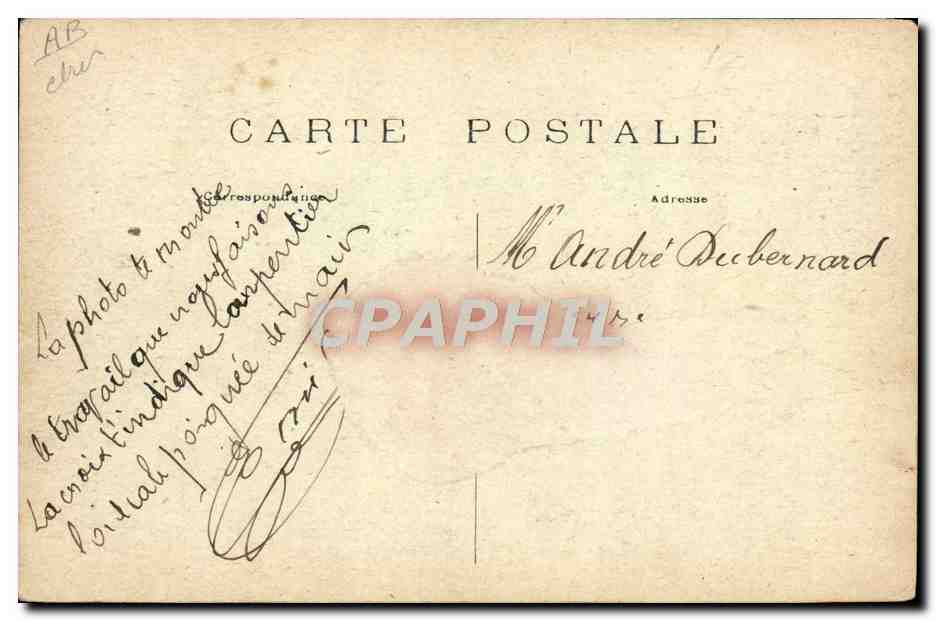 AB
CARTE POSTALE
Correspondance
Adresse
La photo te montre
le travail que nous faisons
La croix t'indique l'arpentier
poignée de main
Mr André Dubernard
CPAPHIL